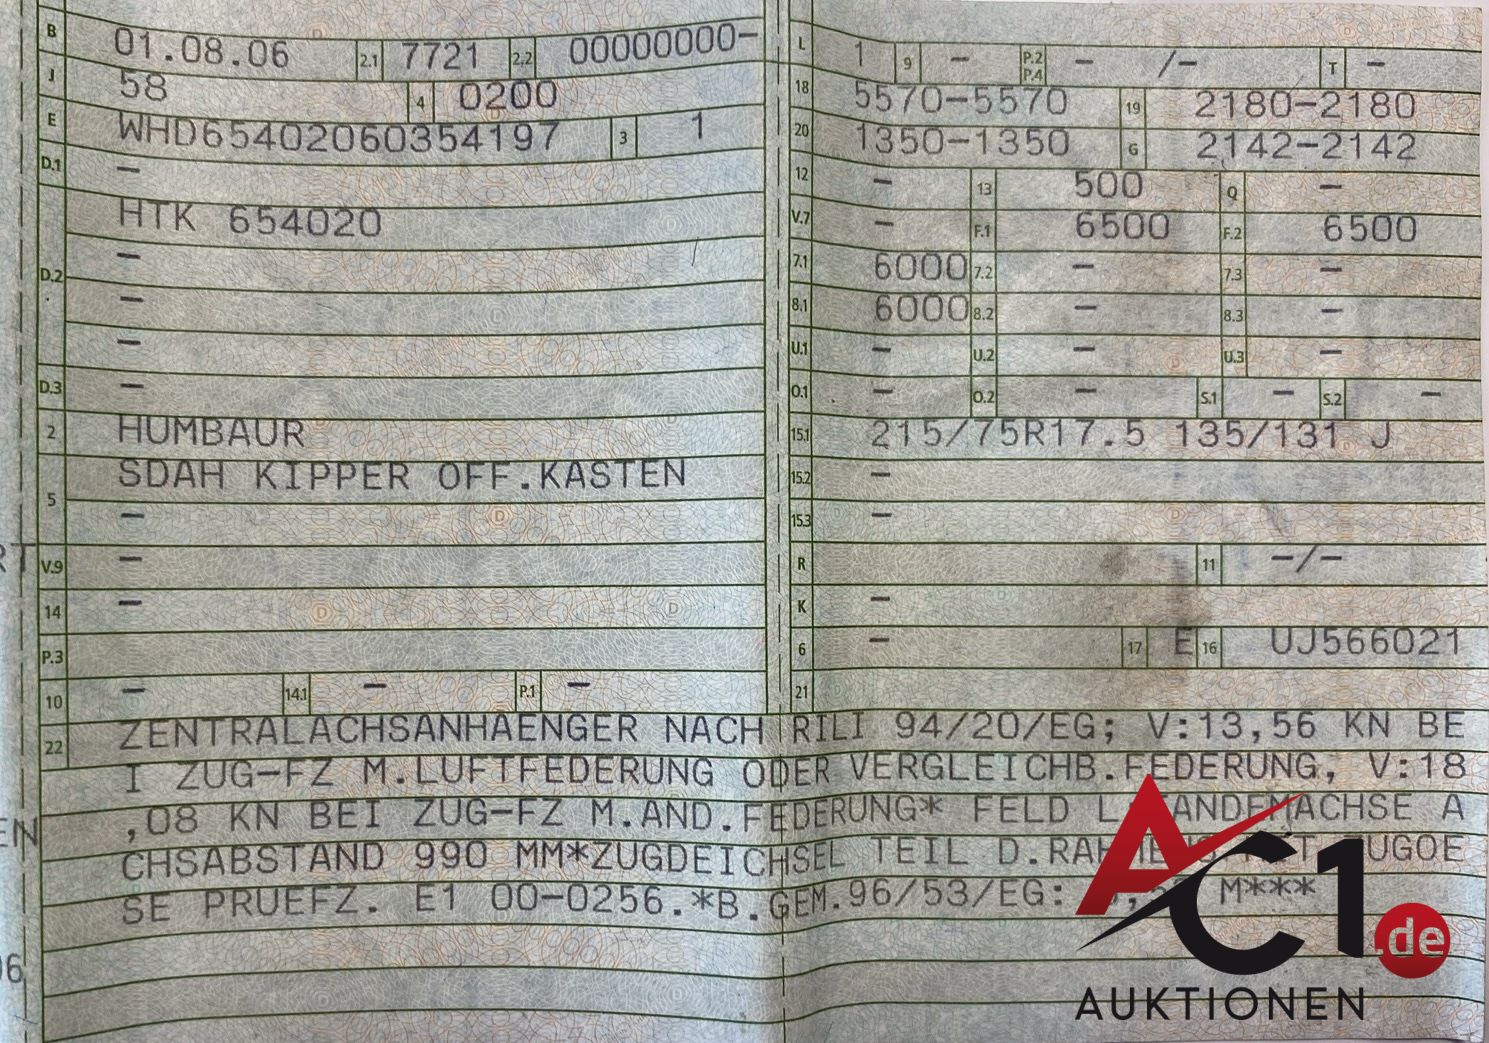 B 01.08.06 2.1 7721 2.2 00000000-
J 58 4 0200
E WHD65402060354197 3 1
D.1 -
HTK 654020
D.2 -
-
-
D.3 -
2 HUMBAUR
5 SDAH KIPPER OFF.KASTEN
-
V.9 -
14 -
P.3
10 - 14.1 - P.1 -
L 1 9 - P.2 P.4 - /- T -
18 5570-5570 19 2180-2180
20 1350-1350 G 2142-2142
12 - 13 500 Q -
V.7 - F.1 6500 F.2 6500
7.1 6000 7.2 - 7.3 -
8.1 6000 8.2 - 8.3 -
U.1 - U.2 - U.3 -
O.1 - O.2 - S.1 - S.2 -
15.1 215/75R17.5 135/131 J
15.2 -
15.3 -
R 11 -/-
K -
6 - 17 E 16 UJ566021
21
22 ZENTRALACHSANHAENGER NACH RILI 94/20/EG; V:13,56 KN BE
I ZUG-FZ M.LUFTFEDERUNG ODER VERGLEICHB.FEDERUNG, V:18
,08 KN BEI ZUG-FZ M.AND.FEDERUNG* FELD A
CHSABSTAND 990 MM*ZUGDEICHSEL TEIL
SE PRUEFZ. E1 00-0256.*B.GEM.96/53/EG: M***
EN
06
AC1.de
AUKTIONEN